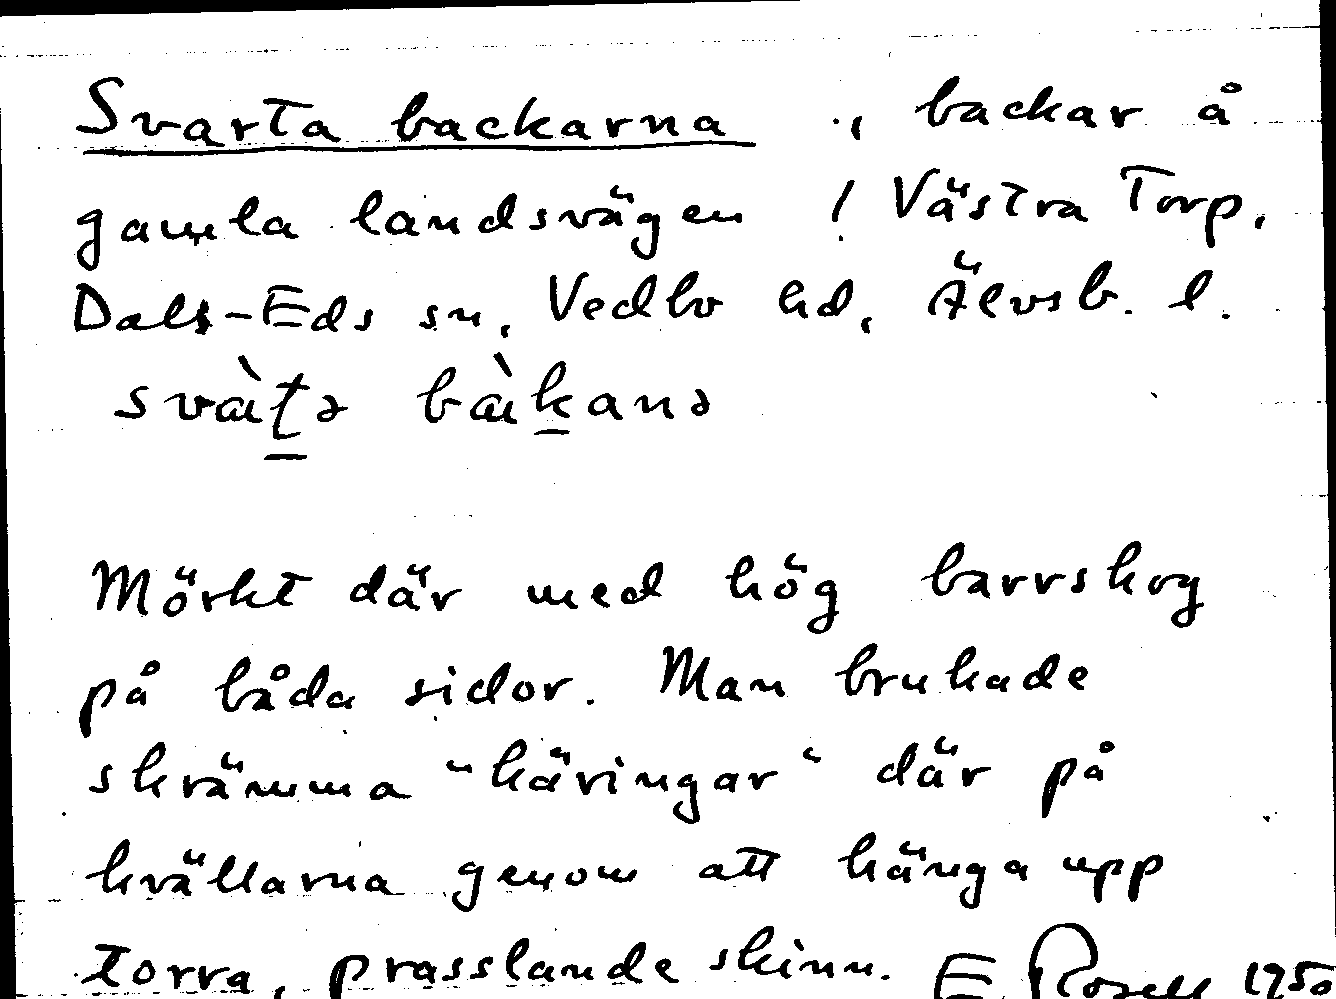 Svarta backarna, backar å
gamla landsvägen i Västra Torp,
Dals-Eds sn, Vedbo hd, Älvsb. l.
svàt̲ə bàk̲anə
Mörkt där med hög barrskog
på båda sidor. Man brukade
skrämma "käringar" där på
kvällarna genom att hänga upp
torra, prasslande skinn. E Rosell 1950